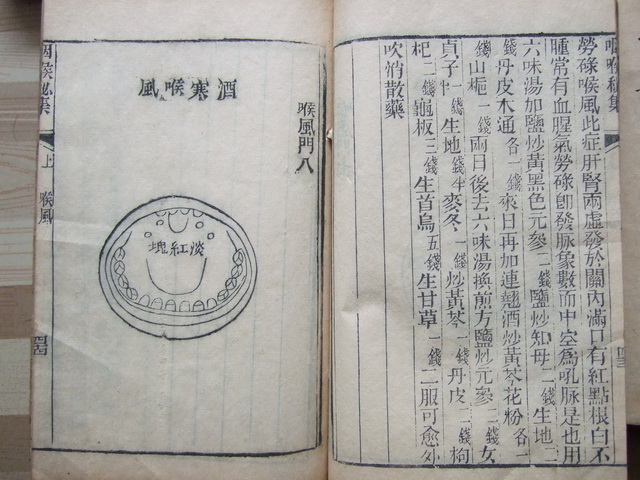 咽喉秘集
勞碌喉風此症肝腎兩虛發於關內滿口有紅點根白不
腫常有血腥氣勞碌卽發脈象數而中空爲芤脈是也用
六味湯加鹽炒黃黑色元參二錢鹽炒知母二錢生地三
錢丹皮木通各一錢來日再加連翹酒炒黃芩花粉各一
錢山梔一錢兩日後去六味湯換煎方鹽炒元參二錢女
貞子一錢生地半麥冬一錢炒黃芩一錢丹皮一錢枸
杞二錢龜板三錢生首烏五錢生甘草一錢二服可愈外
吹悄散藥
喉風門八
酒寒喉風
淡紅塊
咽喉秘集
上
喉風